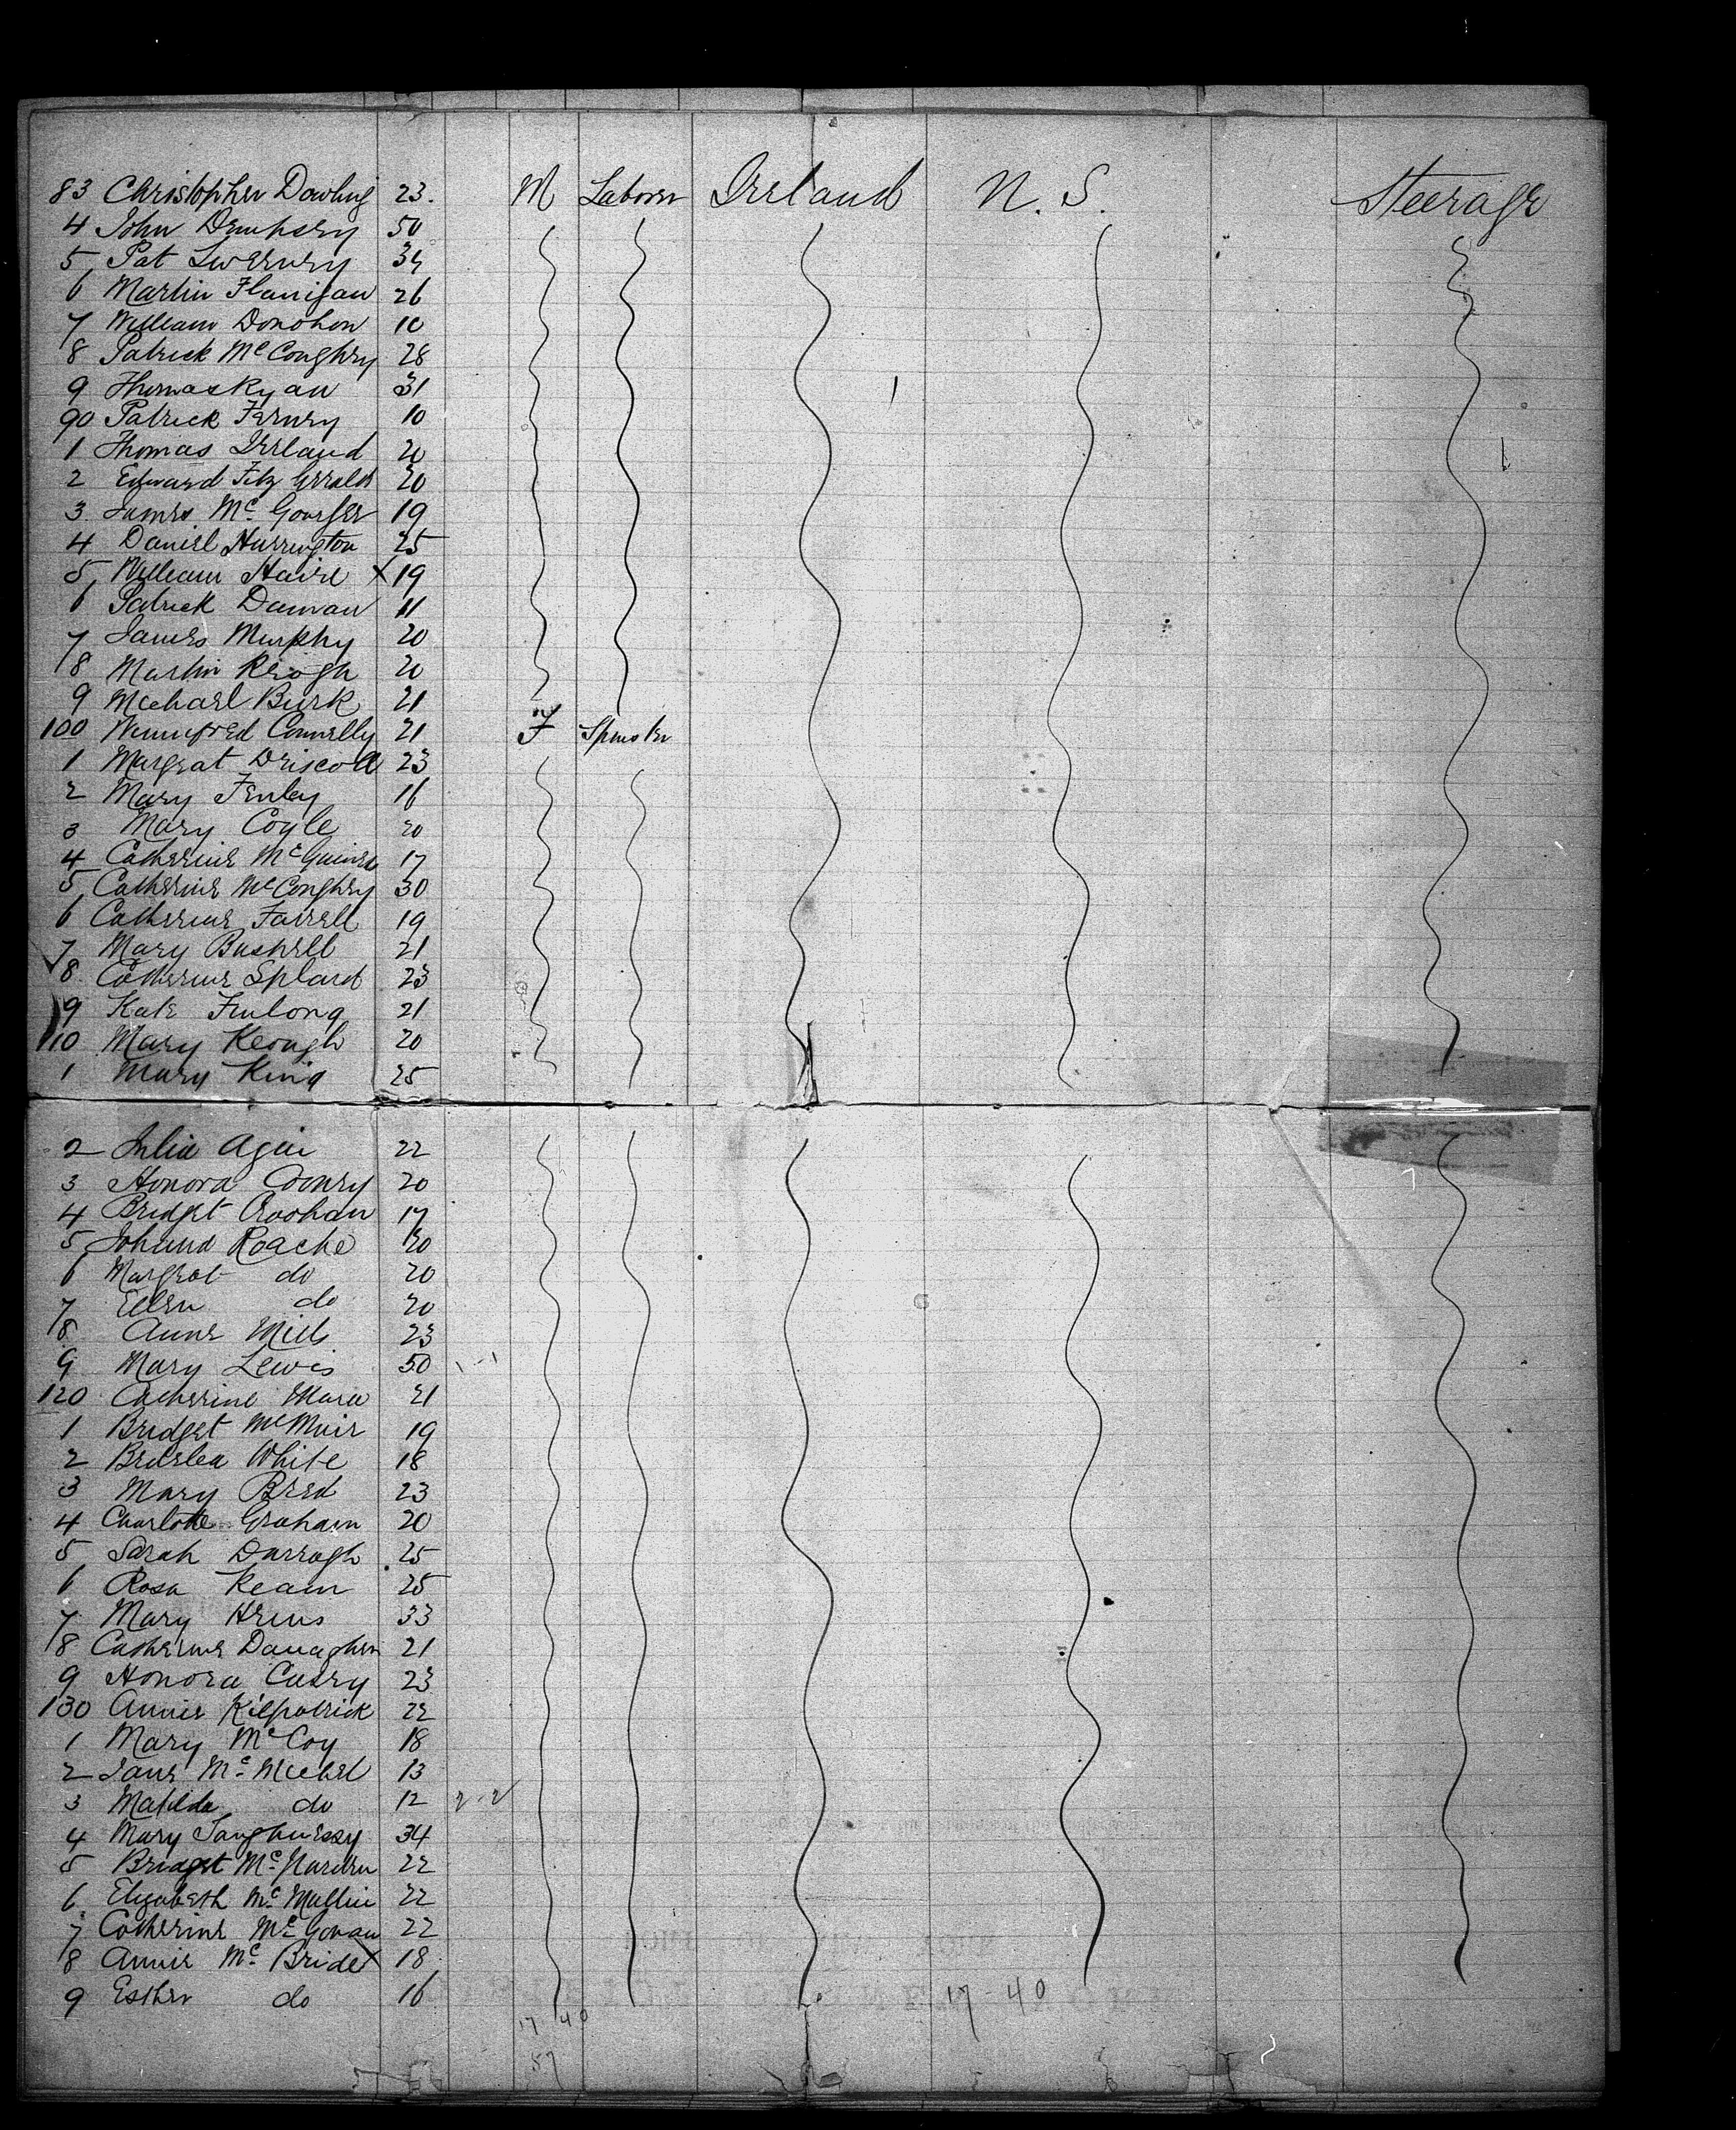 83 Christopher Dowling 23. M Laborer Ireland N. S. Steerage
4 John Dempsey 50
5 Pat 34
6 Martin Flanigan 26
7 William Donohon 10
8 Patrick McConghey 28
9 Thomas Ryan 31
90 Patrick Ferney 10
1 Thomas Ireland 20
2 Edward Fitz Gerald 20
3 James Mc 19
4 Daniel Hurrington 25
5 William Haire X 19
6 Patrick 11
7 James Murphy 20
8 Martin Keogh 20
9 Michael Burk 21
100 Winnifred Connelly 21 F Spinster
1 Margrat Driscoll 23
2 Mary Fenley 16
3 Mary Coyle 20
4 Catherine Mc 17
5 Catherine McConghey 30
6 Catherine Farrell 19
7 Mary Bushell 21
8 Catherine Splard 23
9 Kate Furlong 21
110 Mary Keough 20
1 Mary King 25
2 Julia Agin 22
3 Honora Coonry 20
4 Bridget Croohan 17
5 Johana Roache 20
6 Margrat do 20
7 Ellen do 20
8 Anne Mills 23
9 Mary Lewis 50 1-1
120 Catherine Mara 21
1 Bridget McMuir 19
2 White 18
3 Mary Breed 23
4 Charlotte Graham 20
5 Sarah Darragh 25
6 Rosa Keam 25
7 Mary 33
8 Catherine Danaghen 21
9 Honora Casey 23
130 Annie Kilpatrick 22
1 Mary McCoy 18
2 Jane Mc Michel 13
3 Matilda do 12 2-2
4 Mary 34
5 Bridget Mc 22
6 Elizabeth Mc Mullin 22
7 Catherine Mc Gowan 22
8 Annie Mc Bride X 18
9 Esther do 16
17 40 17-40
57